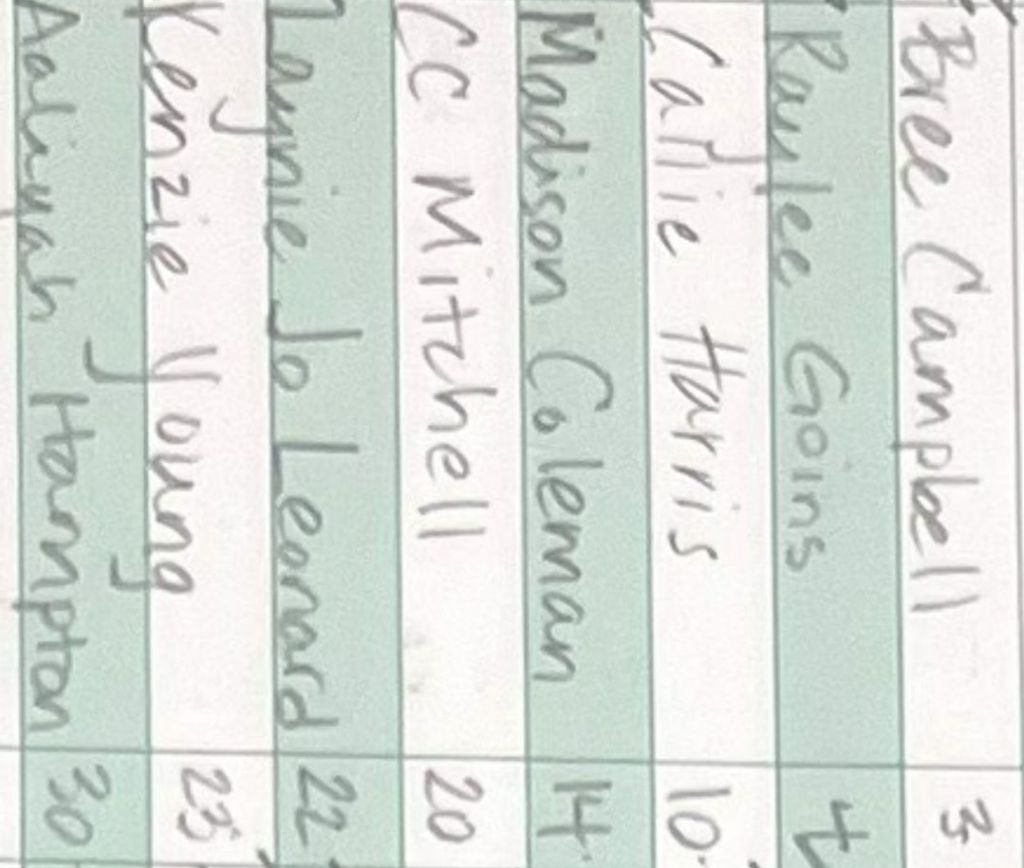 Bree Campbell 3
Raylee Goins 4
Callie Harris 10
Madison Coleman 14
CC Mitchell 20
Laynie Jo Leonard 22
Kenzie Young 23
Aaliyah Hampton 30